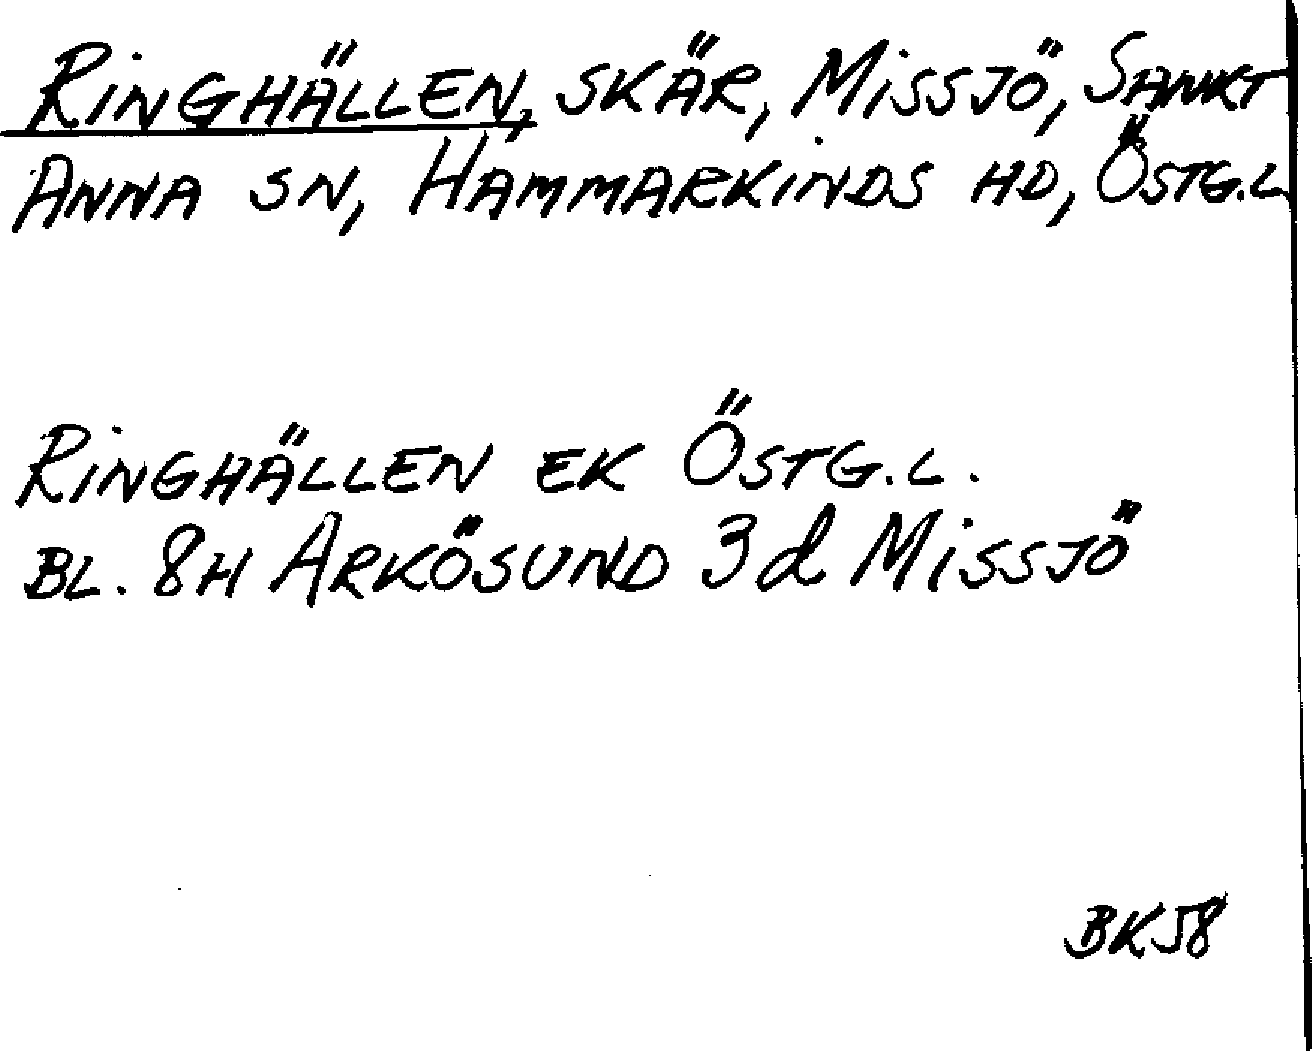 RINGHÄLLEN, SKÄR, MISSJÖ, SANKT
ANNA SN, HAMMARKINDS HD, ÖSTG.L.
RINGHÄLLEN EK ÖSTG.L.
BL. 8H ARKÖSUND 3d MISSJÖ
BK58